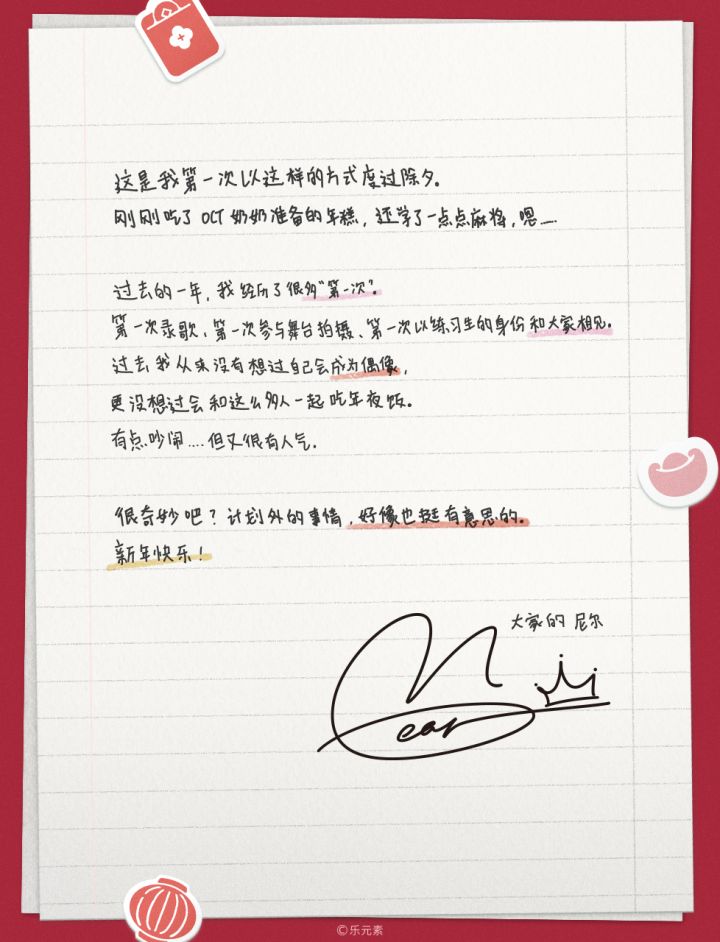 这是我第一次以这样的方式度过除夕。
刚刚吃了OCT奶奶准备的年糕，还学了一点点麻将，嗯……
过去的一年，我经历了很多“第一次”。
第一次录歌、第一次参与舞台拍摄、第一次以练习生的身份和大家相见。
过去我从来没有想过自己会成为偶像，
更没想过会和这么多人一起吃年夜饭。
有点吵闹……但又很有人气。
很奇妙吧？计划外的事情，好像也挺有意思的。
新年快乐！
大家的 尼尔
Near
©乐元素